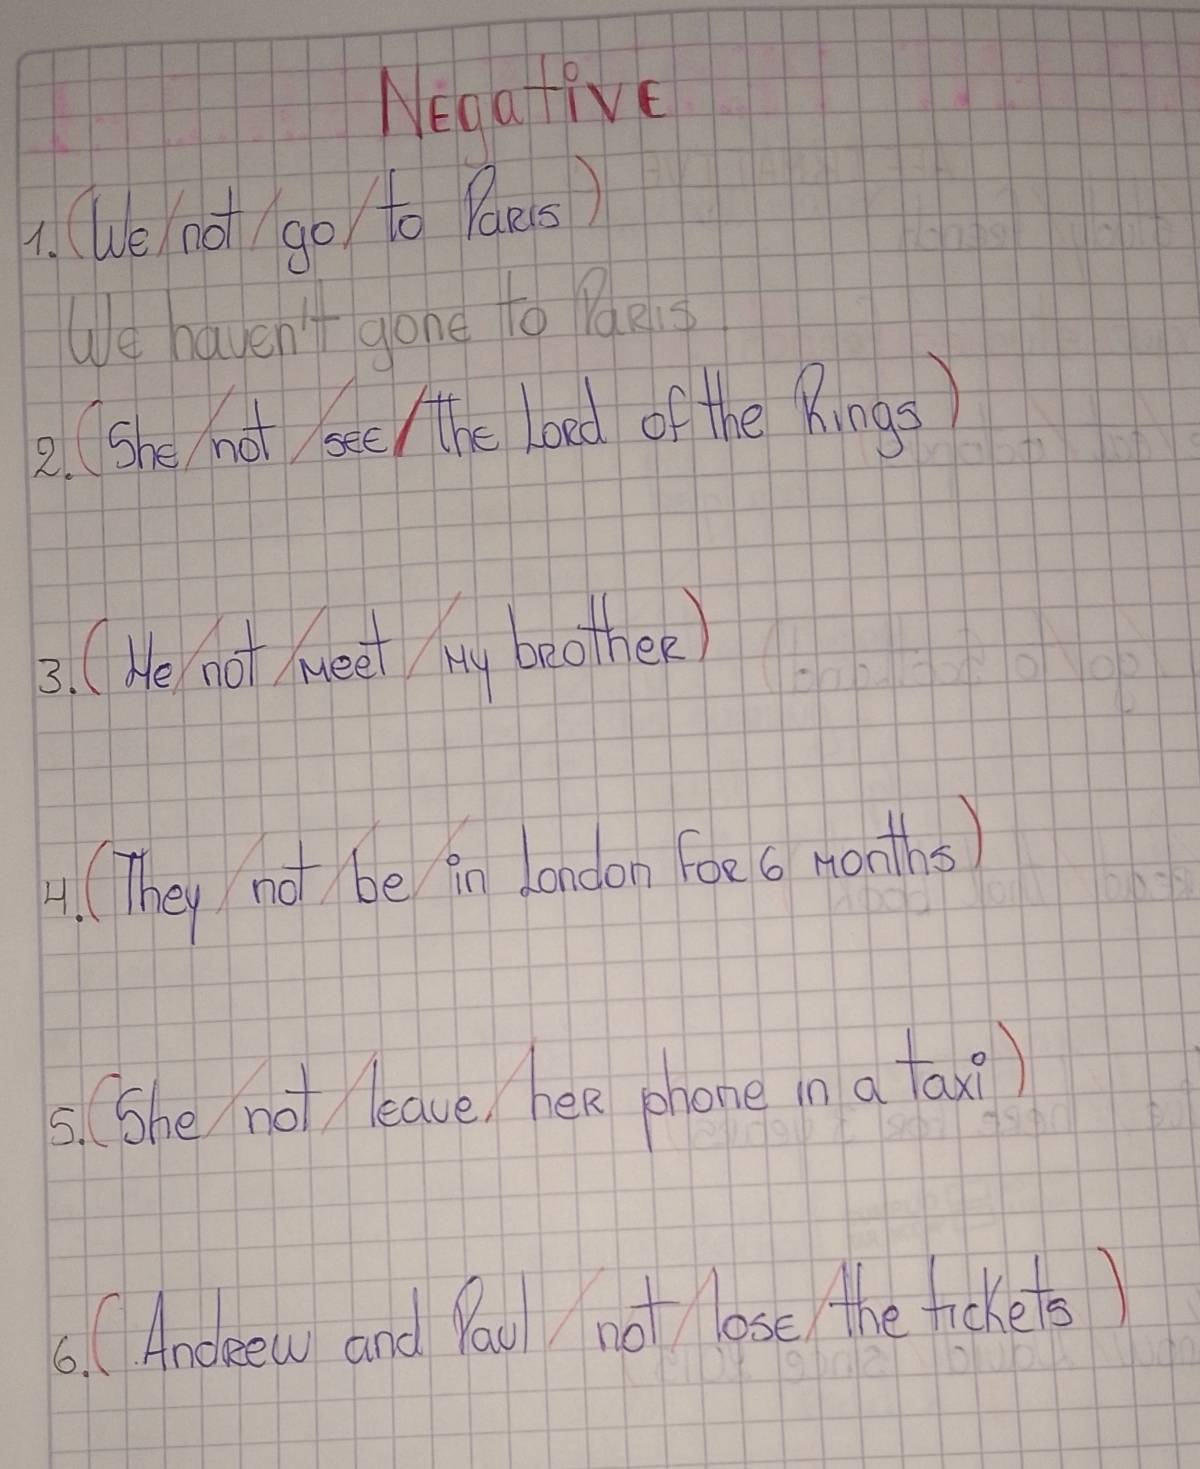 Negative
1. (We/not/go/to Paris)
We haven't gone to Paris.
2. (She/not/see/The Lord of the Rings)
3. (He/not/meet/my brother)
4. (They/not/be/in London for 6 months)
5. (She/not/leave/her phone in a taxi)
6. (Andrew and Paul/not/lose/the tickets)